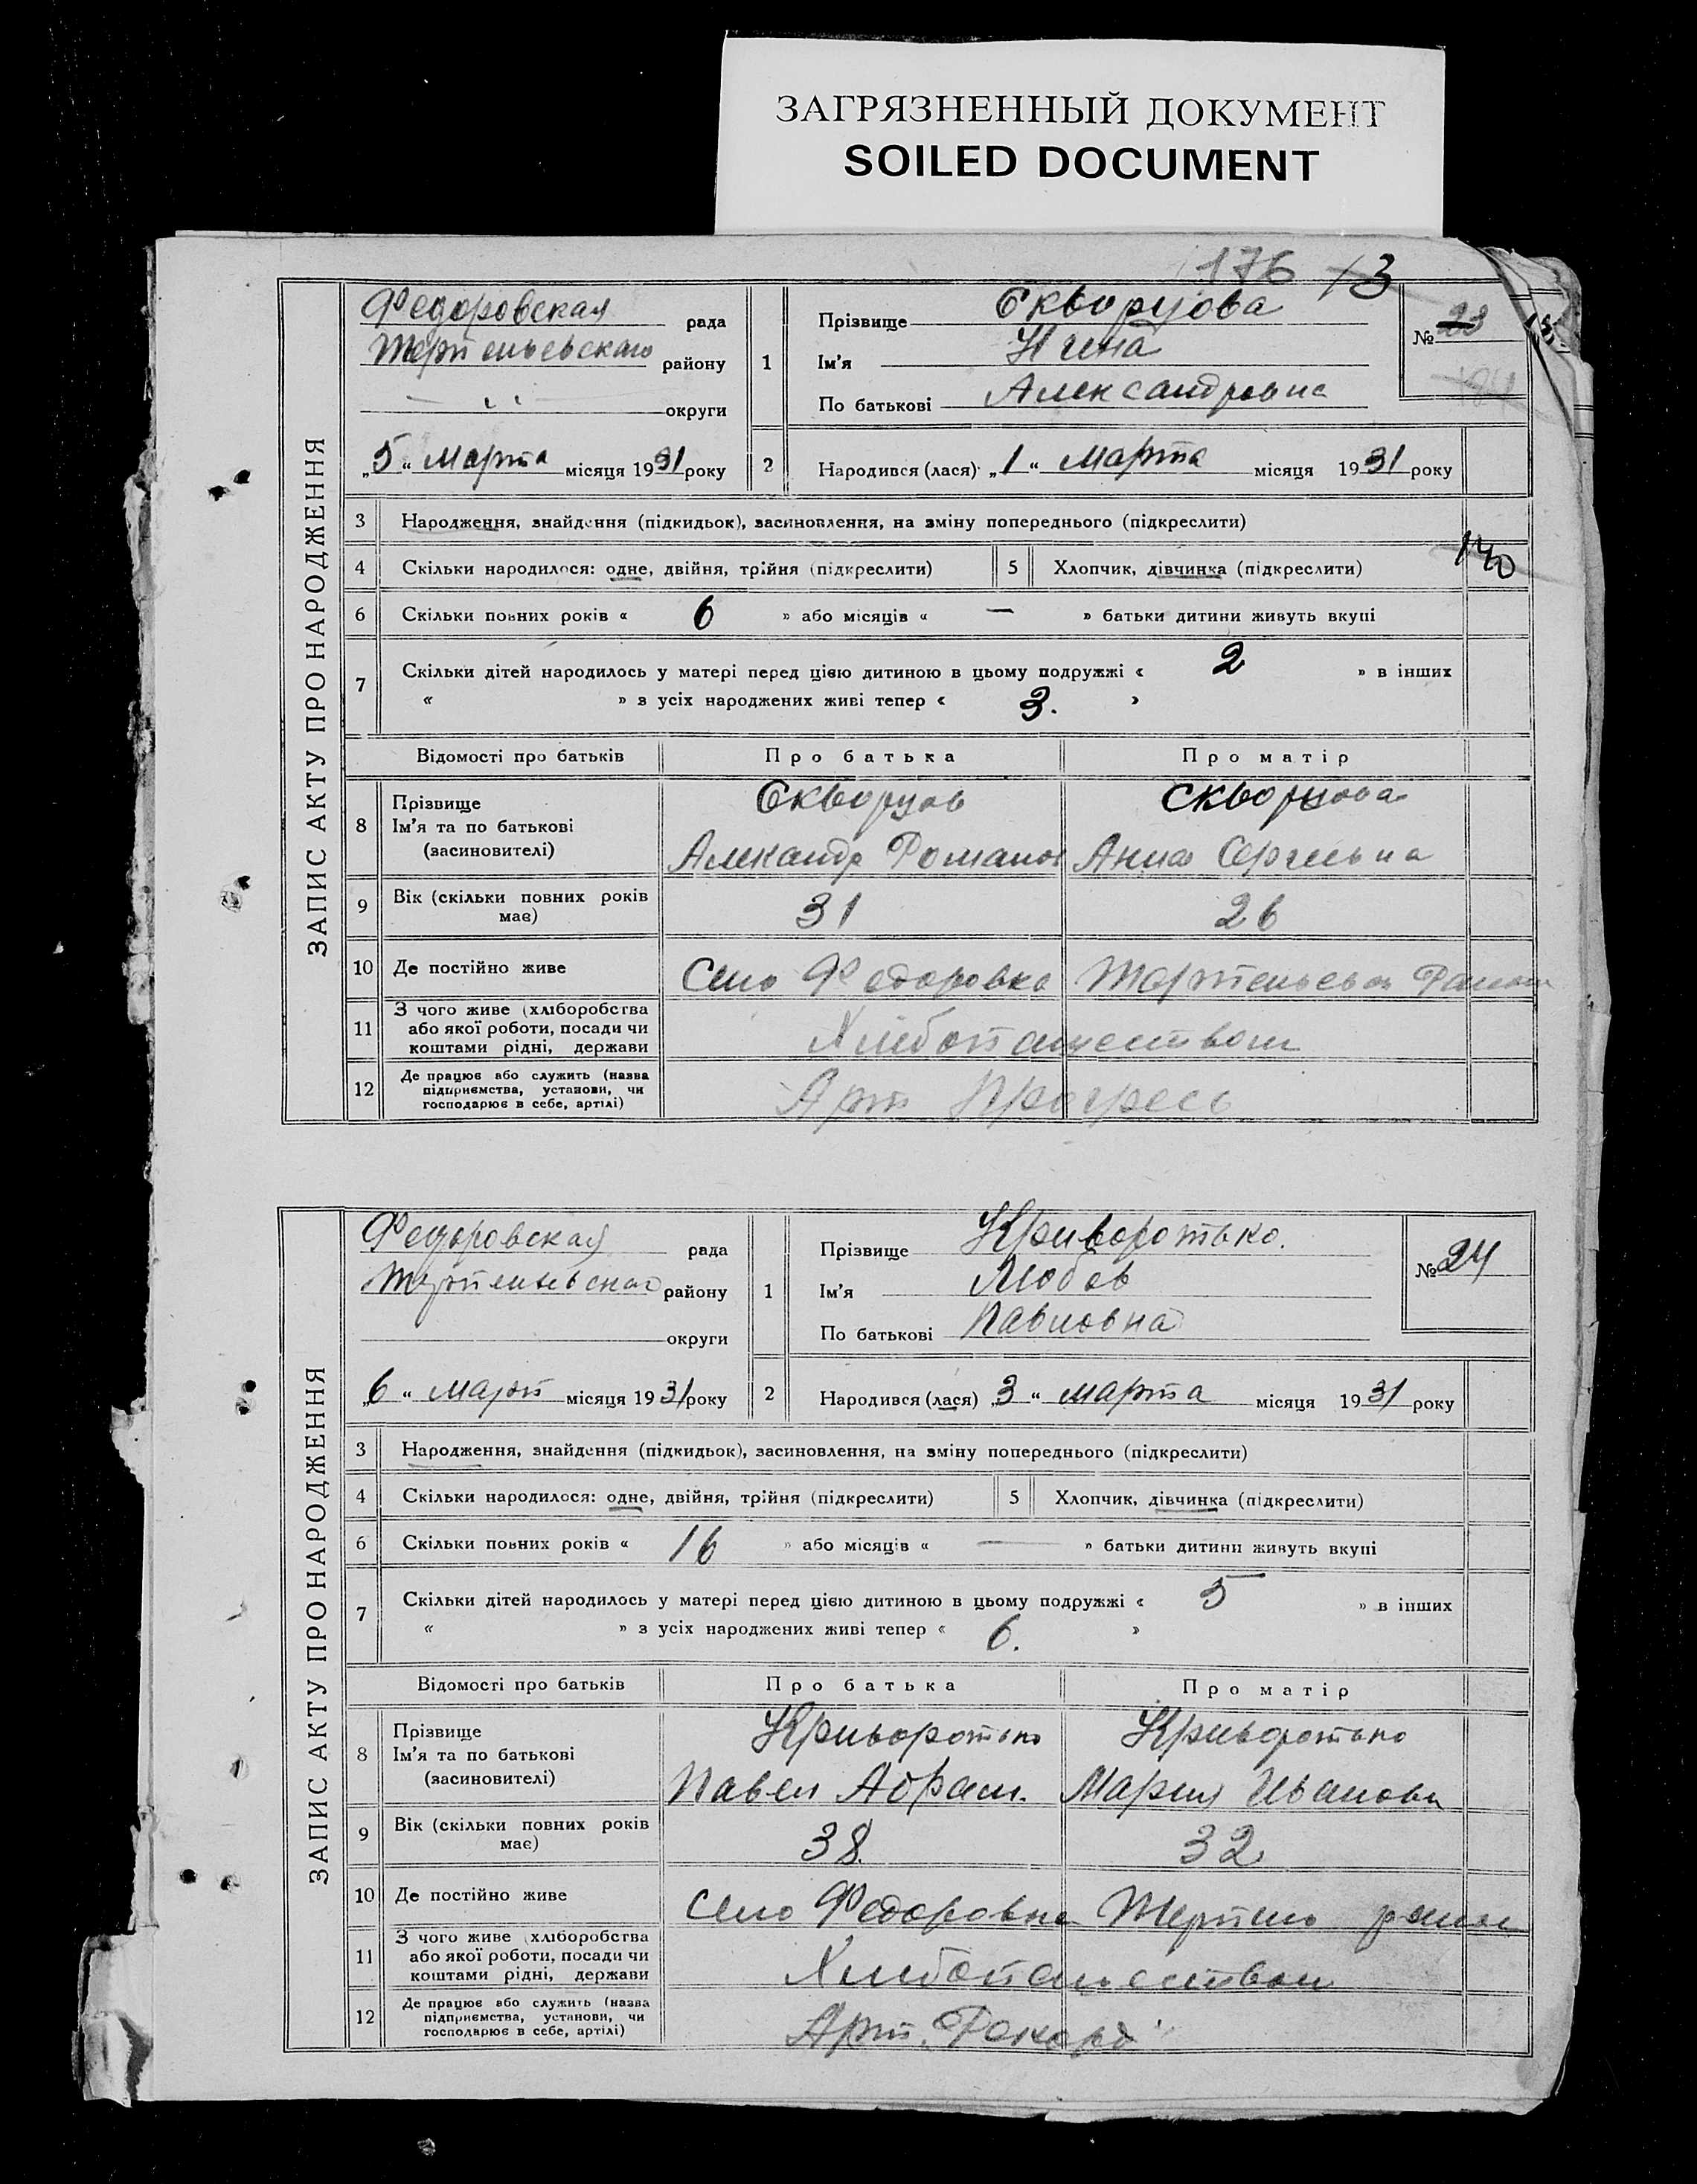 ЗАГРЯЗНЕННЫЙ ДОКУМЕНТ
SOILED DOCUMENT
176 13
ЗАПИС АКТУ ПРО НАРОДЖЕННЯ
Федоровская рада
района району
округи
„5“ Марта місяця 1931 року
1 Прізвище Скворцова
Ім'я Нина
По батькові Александровна
№ 23
2 Народився (лася) „1“ Марта місяця 1931 року
3 Народження, знайдення (підкидьок), засиновлення, на зміну попереднього (підкреслити)
140
4 Скільки народилося: одне, двійня, трійня (підкреслити) 5 Хлопчик, дівчинка (підкреслити)
6 Скільки повних років « 6 » або місяців « — » батьки дитини живуть вкупі
7 Скільки дітей народилось у матері перед цією дитиною в цьому подружжі « 2 » в інших
« » з усіх народжених живі тепер « 3. »
Відомості про батьків Про батька Про матір
8 Прізвище Скворцов Скворцова
Ім'я та по батькові
(засиновителі) Александр Романов Анна Сергеевна
9 Вік (скільки повних років має) 31 26
10 Де постійно живе Село Федоровка
11 З чого живе (хліборобства
або якої роботи, посади чи
коштами рідні, держави Хлебопашеством
12 Де працює або служить (назва
підприємства, установи, чи
господарює в себе, артілі) Арт Прогресс
ЗАПИС АКТУ ПРО НАРОДЖЕННЯ
Федоровская рада
району
округи
„6“ Март місяця 1931 року
1 Прізвище Криворотько.
Ім'я Любов
По батькові Павловна
№ 24
2 Народився (лася) „3“ марта місяця 1931 року
3 Народження, знайдення (підкидьок), засиновлення, на зміну попереднього (підкреслити)
4 Скільки народилося: одне, двійня, трійня (підкреслити) 5 Хлопчик, дівчинка (підкреслити)
6 Скільки повних років « 16 » або місяців « — » батьки дитини живуть вкупі
7 Скільки дітей народилось у матері перед цією дитиною в цьому подружжі « 5 » в інших
« » з усіх народжених живі тепер « 6. »
Відомості про батьків Про батька Про матір
8 Прізвище Криворотько Криворотько
Ім'я та по батькові
(засиновителі) Павел Абрам. Мария Ивановн
9 Вік (скільки повних років має) 38. 32
10 Де постійно живе Село Федоровка
11 З чого живе (хліборобства
або якої роботи, посади чи
коштами рідні, держави Хлебопашеством
12 Де працює або служить (назва
підприємства, установи, чи
господарює в себе, артілі) Арт. „Рекорд"